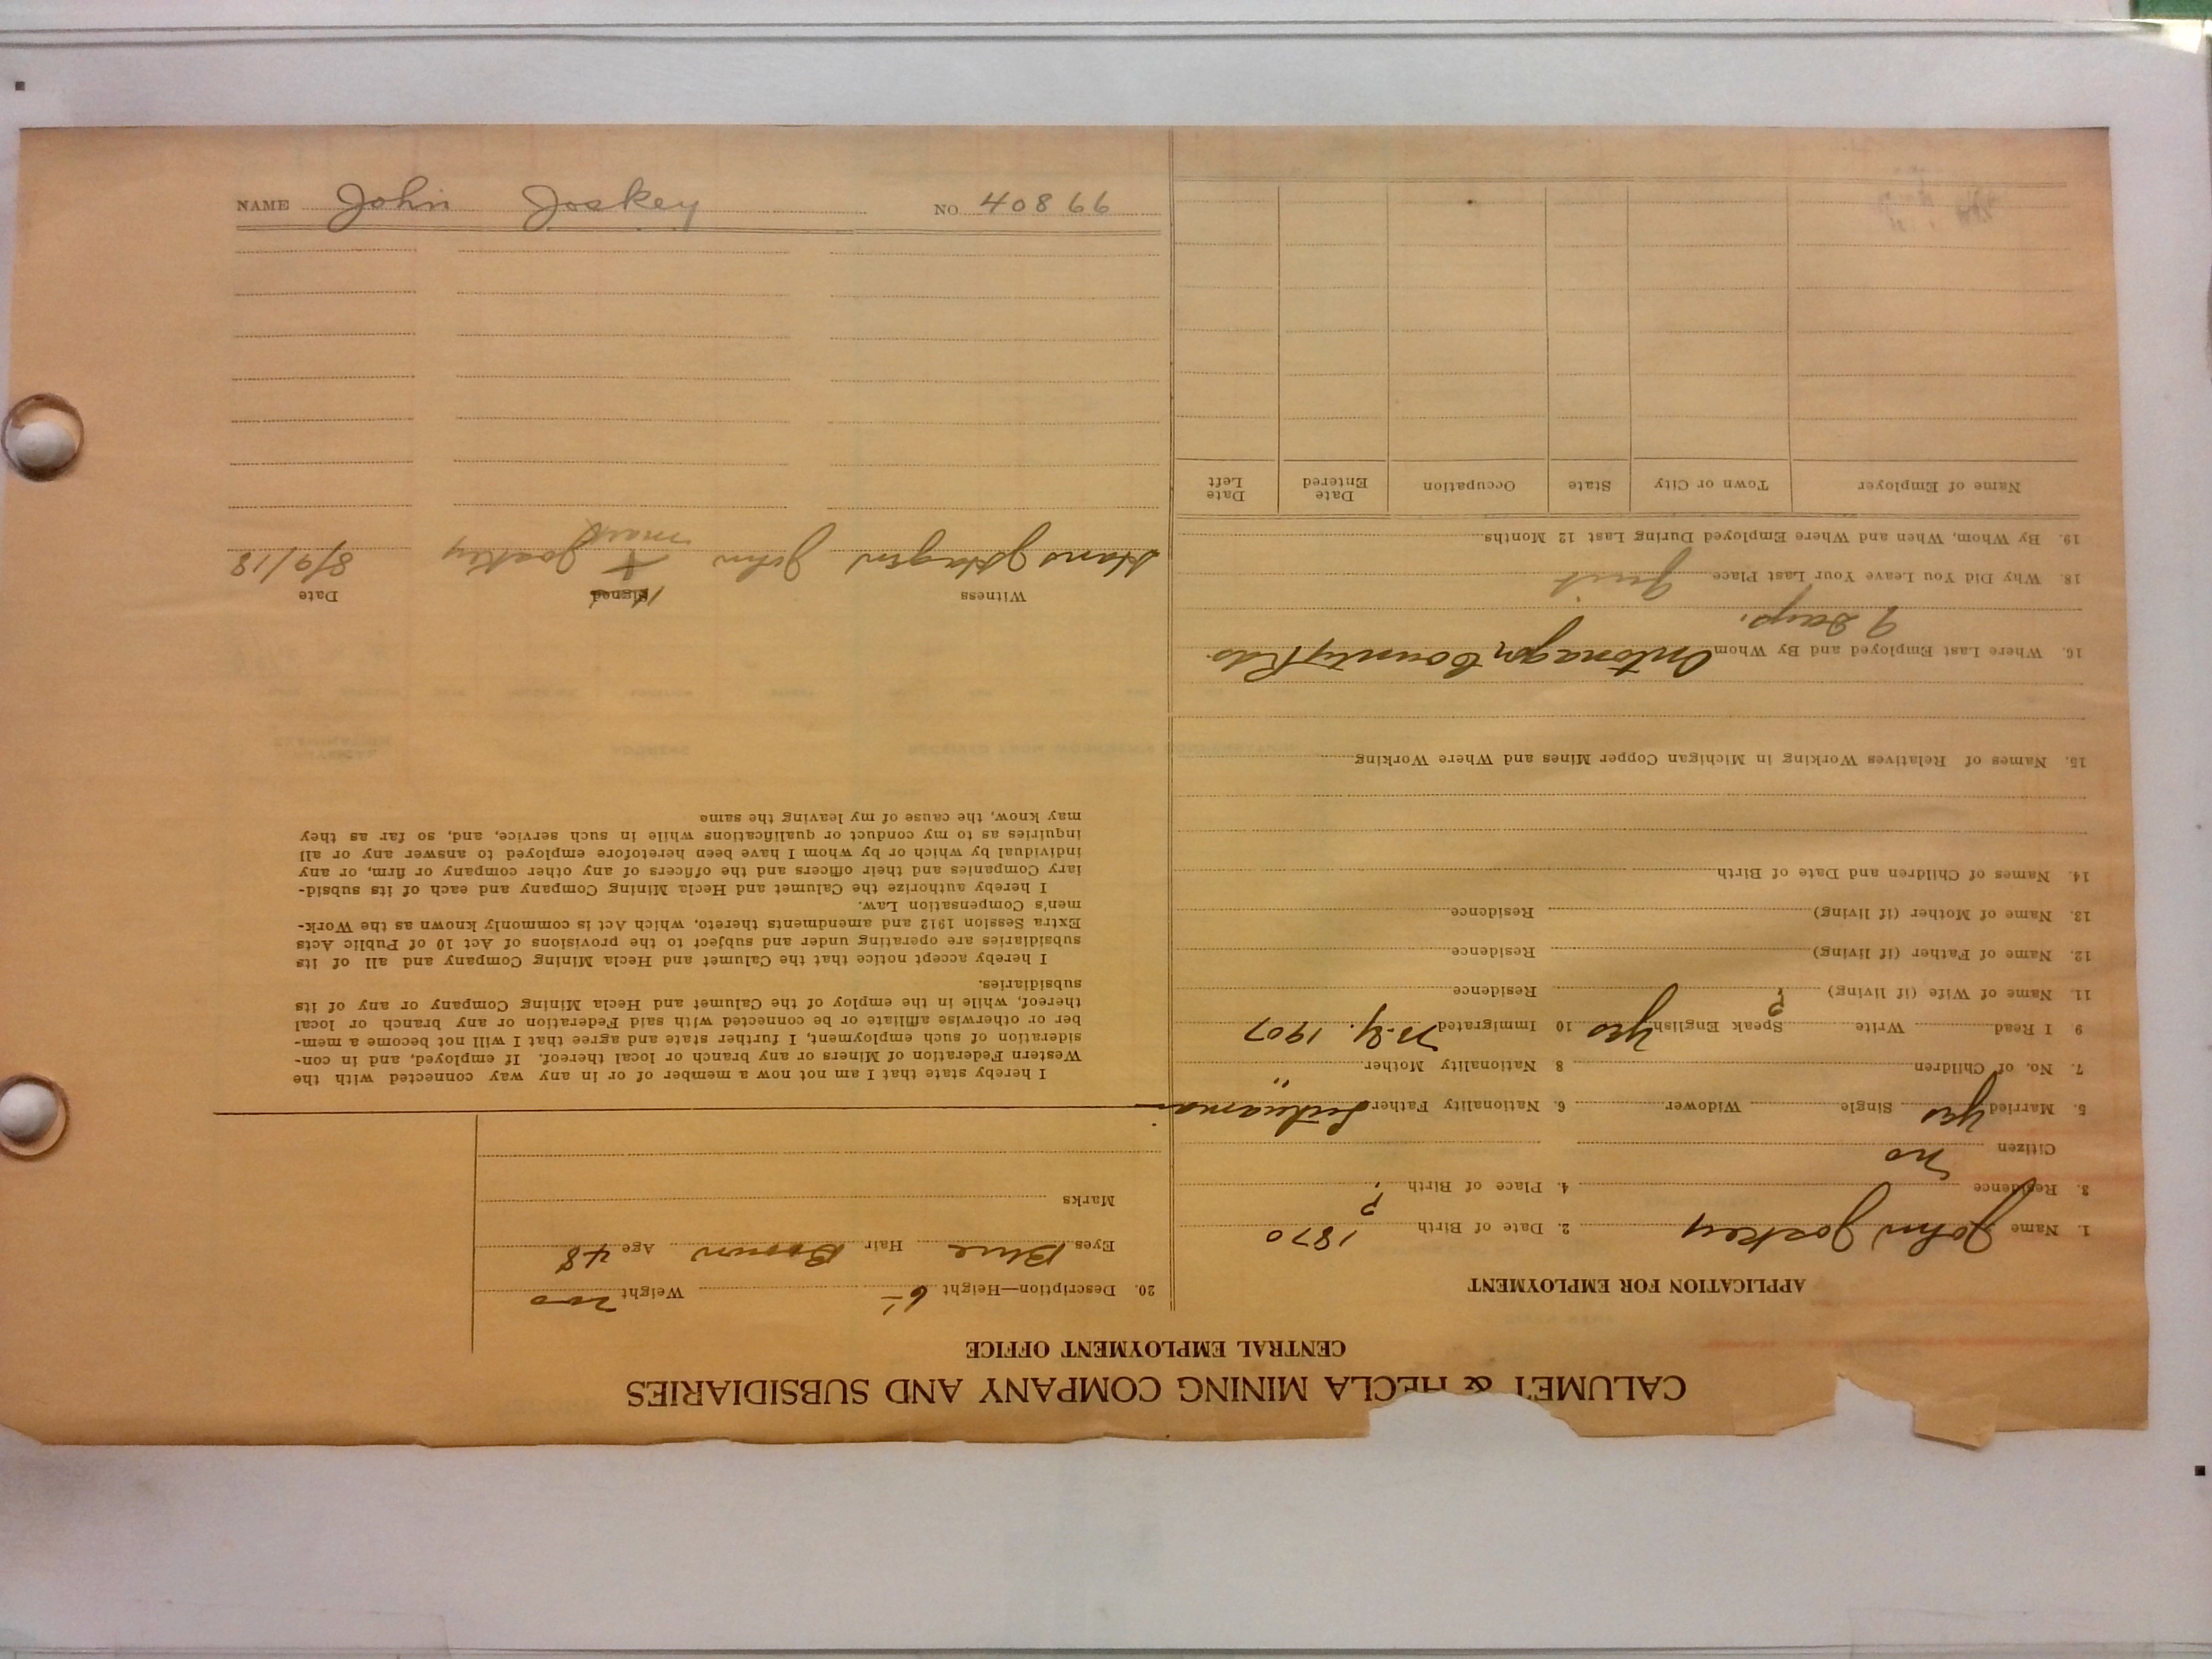 CALUMET & HECLA MINING COMPANY AND SUBSIDIARIES
CENTRAL EMPLOYMENT OFFICE
APPLICATION FOR EMPLOYMENT
1. Name John Joskey 2. Date of Birth 1870
3. Residence 4. Place of Birth ?
Citizen no
5. Married yes Single Widower 6. Nationality Father
7. No. of Children 8 Nationality Mother "
9 I Read Write Speak English yes 10 Immigrated N.Y. 1907
11. Name of Wife (if living) ? Residence
12. Name of Father (if living) Residence
13. Name of Mother (if living) Residence
14. Names of Children and Date of Birth
15. Names of Relatives Working in Michigan Copper Mines and Where Working
16. Where Last Employed and By Whom Ontonagon County Rds
9 Days.
18. Why Did You Leave Your Last Place quit
19. By Whom, When and Where Employed During Last 12 Months
Name of Employer Town or City State Occupation Date Entered Date Left
20. Description—Height 6- Weight 200
Eyes Blue Hair Brown Age 48
Marks
I hereby state that I am not now a member of or in any way connected with the
Western Federation of Miners or any branch or local thereof. If employed, and in con-
sideration of such employment, I further state and agree that I will not become a mem-
ber or otherwise affiliate or be connected with said Federation or any branch or local
thereof, while in the employ of the Calumet and Hecla Mining Company or any of its
subsidiaries.
I hereby accept notice that the Calumet and Hecla Mining Company and all of its
subsidiaries are operating under and subject to the provisions of Act 10 of Public Acts
Extra Session 1912 and amendments thereto, which Act is commonly known as the Work-
men's Compensation Law.
I hereby authorize the Calumet and Hecla Mining Company and each of its subsid-
iary Companies and their officers and the officers of any other company or firm, or any
individual by which or by whom I have been heretofore employed to answer any or all
inquiries as to my conduct or qualifications while in such service, and, so far as they
may know, the cause of my leaving the same
Witness Signed Date
Hans J John X Joskey 8/9/18
mark
NAME John Joskey NO. 40866